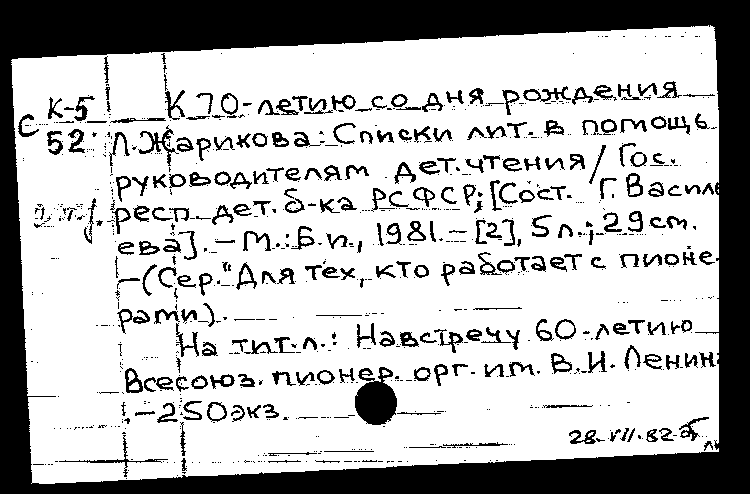 К-5 К 70-летию со дня рождения
С 52 Л.Жарикова: Списки лит. в помощь
руководителям дет.чтения/Гос.
респ. дет. б-ка РСФСР; [Сост. Г. Василь
ева]. – М.: Б.и., 1981. – [2], 5 л.; 29 см.
– (Сер. "Для тех, кто работает с пионе-
рами).
На тит.л.: Навстречу 60-летию
Всесоюз. пионер. орг. им. В.И. Ленина
. – 250 экз.
28.VII.82